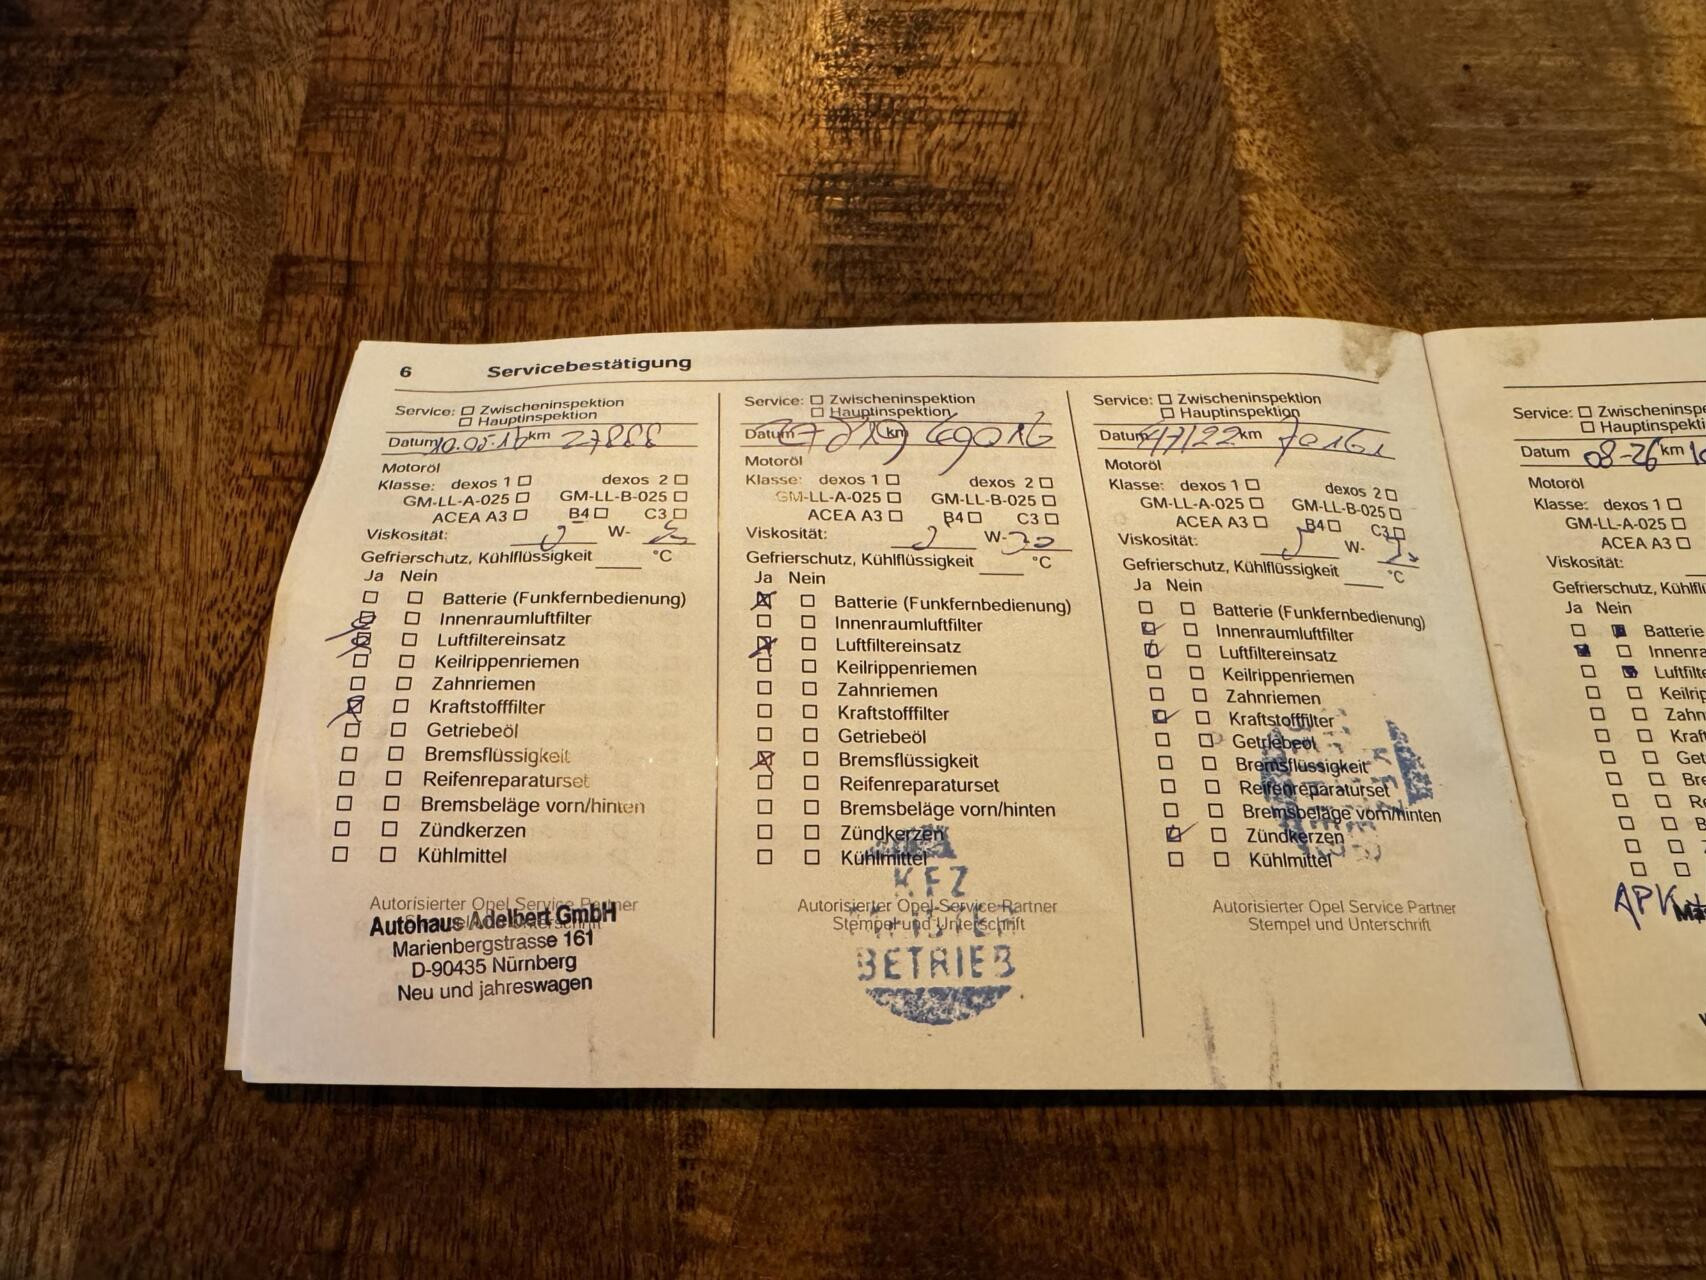 6 Servicebestätigung
Service: Zwischeninspektion
Hauptinspektion
Datum km 27888
Motoröl
Klasse: dexos 1 dexos 2
GM-LL-A-025 GM-LL-B-025
ACEA A3 B4 C3
Viskosität: W-
Gefrierschutz, Kühlflüssigkeit °C
Ja Nein
Batterie (Funkfernbedienung)
Innenraumluftfilter
Luftfiltereinsatz
Keilrippenriemen
Zahnriemen
Kraftstofffilter
Getriebeöl
Bremsflüssigkeit
Reifenreparaturset
Bremsbeläge vorn/hinten
Zündkerzen
Kühlmittel
Autorisierter Opel Service Partner
Autohaus Adelbert GmbH
Marienbergstrasse 161
D-90435 Nürnberg
Neu und jahreswagen
Service: Zwischeninspektion
Hauptinspektion
Datum km 69016
Motoröl
Klasse: dexos 1 dexos 2
GM-LL-A-025 GM-LL-B-025
ACEA A3 B4 C3
Viskosität: W-30
Gefrierschutz, Kühlflüssigkeit °C
Ja Nein
Batterie (Funkfernbedienung)
Innenraumluftfilter
Luftfiltereinsatz
Keilrippenriemen
Zahnriemen
Kraftstofffilter
Getriebeöl
Bremsflüssigkeit
Reifenreparaturset
Bremsbeläge vorn/hinten
Zündkerzen
Kühlmittel
KFZ
Autorisierter Opel Service Partner
Stempel und Unterschrift
BETRIEB
Service: Zwischeninspektion
Hauptinspektion
Datum km
Motoröl
Klasse: dexos 1 dexos 2
GM-LL-A-025 GM-LL-B-025
ACEA A3 B4 C3
Viskosität: W-
Gefrierschutz, Kühlflüssigkeit °C
Ja Nein
Batterie (Funkfernbedienung)
Innenraumluftfilter
Luftfiltereinsatz
Keilrippenriemen
Zahnriemen
Kraftstofffilter
Getriebeöl
Bremsflüssigkeit
Reifenreparaturset
Bremsbeläge vorn/hinten
Zündkerzen
Kühlmittel
Autorisierter Opel Service Partner
Stempel und Unterschrift
Service: Zwischeninspe
Hauptinspekti
Datum 08-26 km
Motoröl
Klasse: dexos 1
GM-LL-A-025
ACEA A3
Viskosität:
Gefrierschutz, Kühlflü
Ja Nein
Batterie
Innenra
Luftfilte
Keilrip
Zahn
Kraf
Get
Bre
Re
B
APK